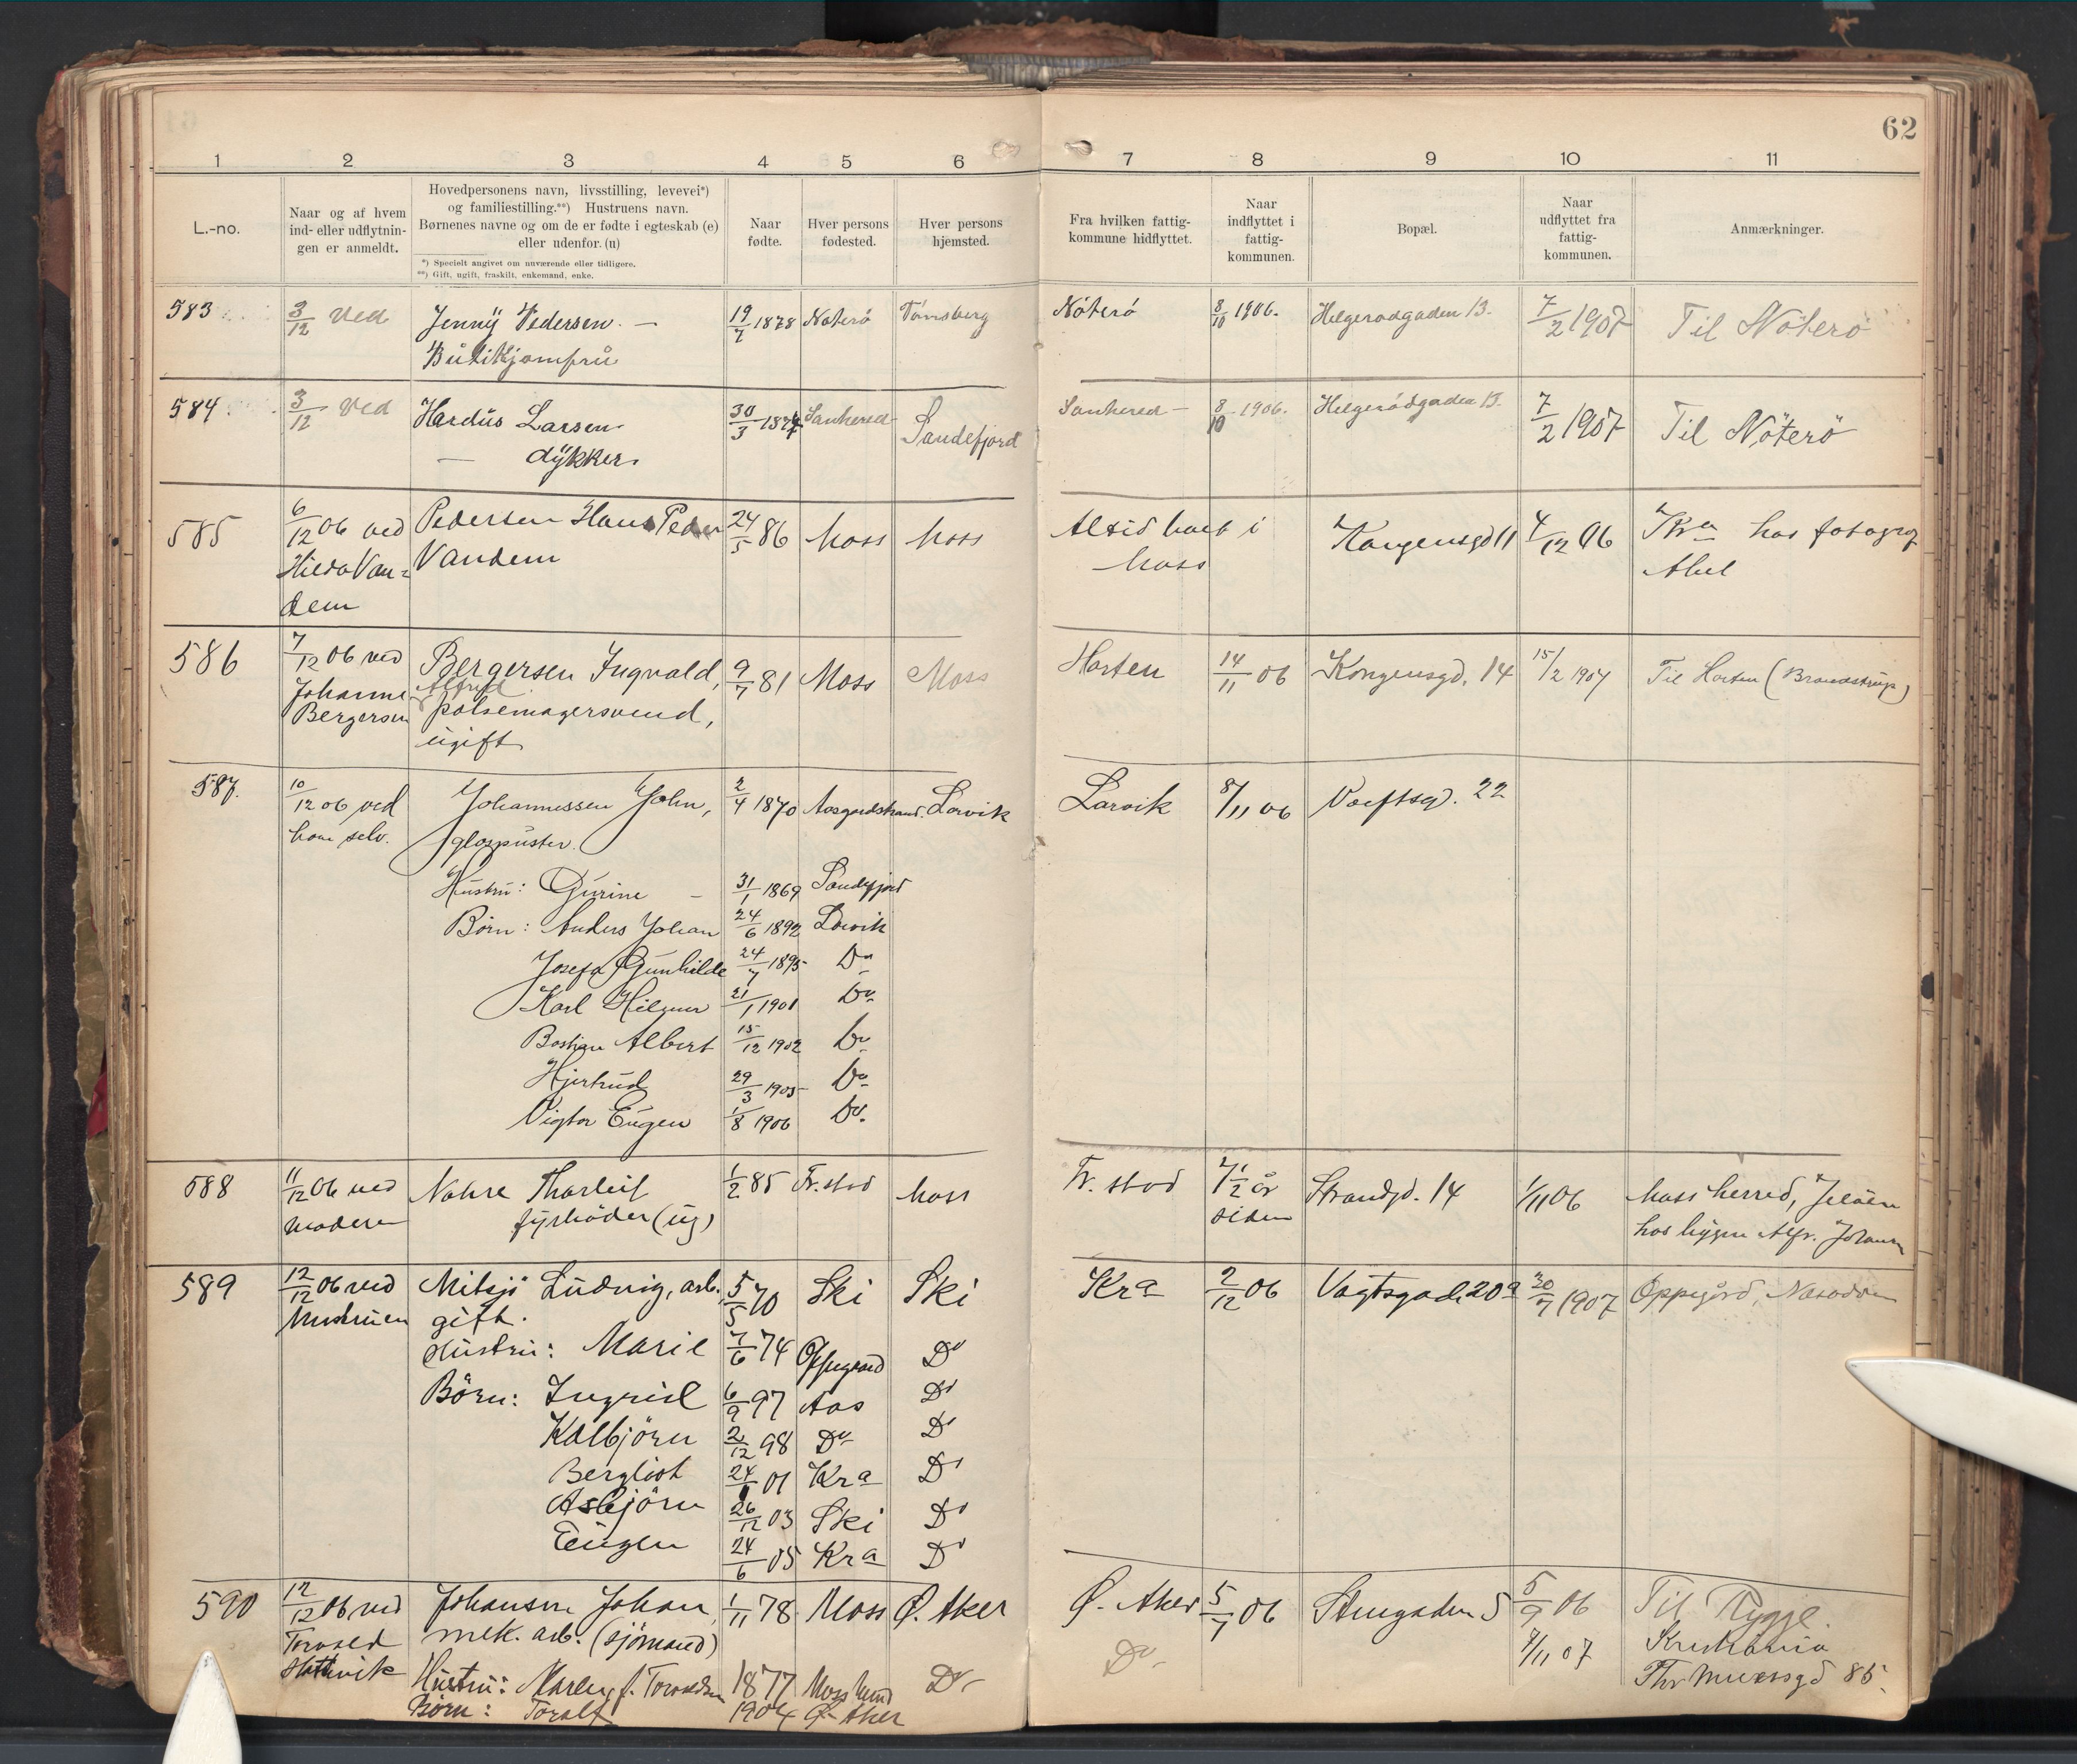 62
1 2 3 4 5 6 7 8 9 10 11
L.-no.
Naar og af hvem
ind- eller udflytnin-
gen er anmeldt.
Hovedpersonens navn, livsstilling, levevei*)
og familiestilling.**) Hustruens navn.
Børnenes navne og om de er fødte i egteskab (e)
eller udenfor. (u)
*) Specielt angivet om nuværende eller tidligere.
**) Gift, ugift, fraskilt, enkemand, enke.
Naar
fødte.
Hver persons
fødested.
Hver persons
hjemsted.
Fra hvilken fattig-
kommune hidflyttet.
Naar
indflyttet i
fattig-
kommunen.
Bopæl.
Naar
udflyttet fra
fattig-
kommunen.
Anmærkninger.
583 3/12 ved Jenny Pedersen. — 19/7 1878 Nøterø Tønsberg Nøterø 8/10 1906. Helgerødgaden 13. 7/2 1907 Til Nøterø
Butikjomfru
584 3/12 ved Hardus Larsen 30/3 1874 Sanherred Sandefjord Sanherred — 8/10 1906. Helgerødgaden 13. 7/2 1907 Til Nøterø
— dykker.
585 6/12 06 ved Pedersen Hans Peder 24/5 86 Moss Moss Altid boet i Kongensgd 11 4/12 06 Kra hos fotograf
Hilda Van= Vandem Moss Abel
dem
586 7/12 06 ved Bergersen Ingvald, 9/7 81 Moss Moss Horten 14/11 06 Kongensgd. 14 15/2 1907 Til Horten (Brandstrup)
Johanne Alfred
Bergersen pølsemagersvend,
ugift
587. 10/12 06 ved Johannessen John, 2/4 1870 Aasgaardstrand. Larvik Larvik 8/11 06 Værftsgd. 22
ham selv. glaspuster.
Hustru: Gurine — 31/1 1869 Sandefjord
Børn: Anders Johan 24/6 1892 Larvik
Josefa Gunhilde 24/7 1895 Do
Karl Hilmar 21/1 1901 Do
Bastian Albert 15/12 1902 Do
Hjertrud 29/3 1905 Do
Vigtor Eugen 1/8 1906 Do.
588 11/12 06 ved Nohre Thorleif 1/2 85 Fr.stad Moss Fr. stad 7 1/2 år Strandgd. 14 1/11 06 Moss herred, Jeløen
moderen fyrbøder (ug) siden hos bygm Alfr. Johansen
589 12/12 06 ved Mitsjø Ludvig, arb. 5/5 70 Ski Ski Kra 2/12 06 Vogtsgade 20a 30/7 1907 Oppegård, Nesodden
hustruen gift.
Hustru: Marie 7/6 74 Oppegaard Do
Børn: Ingrid 6/9 97 Aas Do
Kolbjørn 2/12 98 Do Do
Bergliot 24/ 01 Kra Do
Asbjørn 26/12 03 Ski Do
Eugen 24/6 05 Kra Do
590 12/12 06 ved Johansen Johan 1/11 78 Moss Ø. Aker Ø. Aker 5/7 06 Stengaden 5 5/9 06 Til Rygge
Torvald mek. arb. (sjømand) Do 7/11 07 Kristiania
Hustru: Maren f. Torvaldsen 1877 Moss Do Thv Meyersgd 85.
Børn: Toralf 1904 Ø. Aker